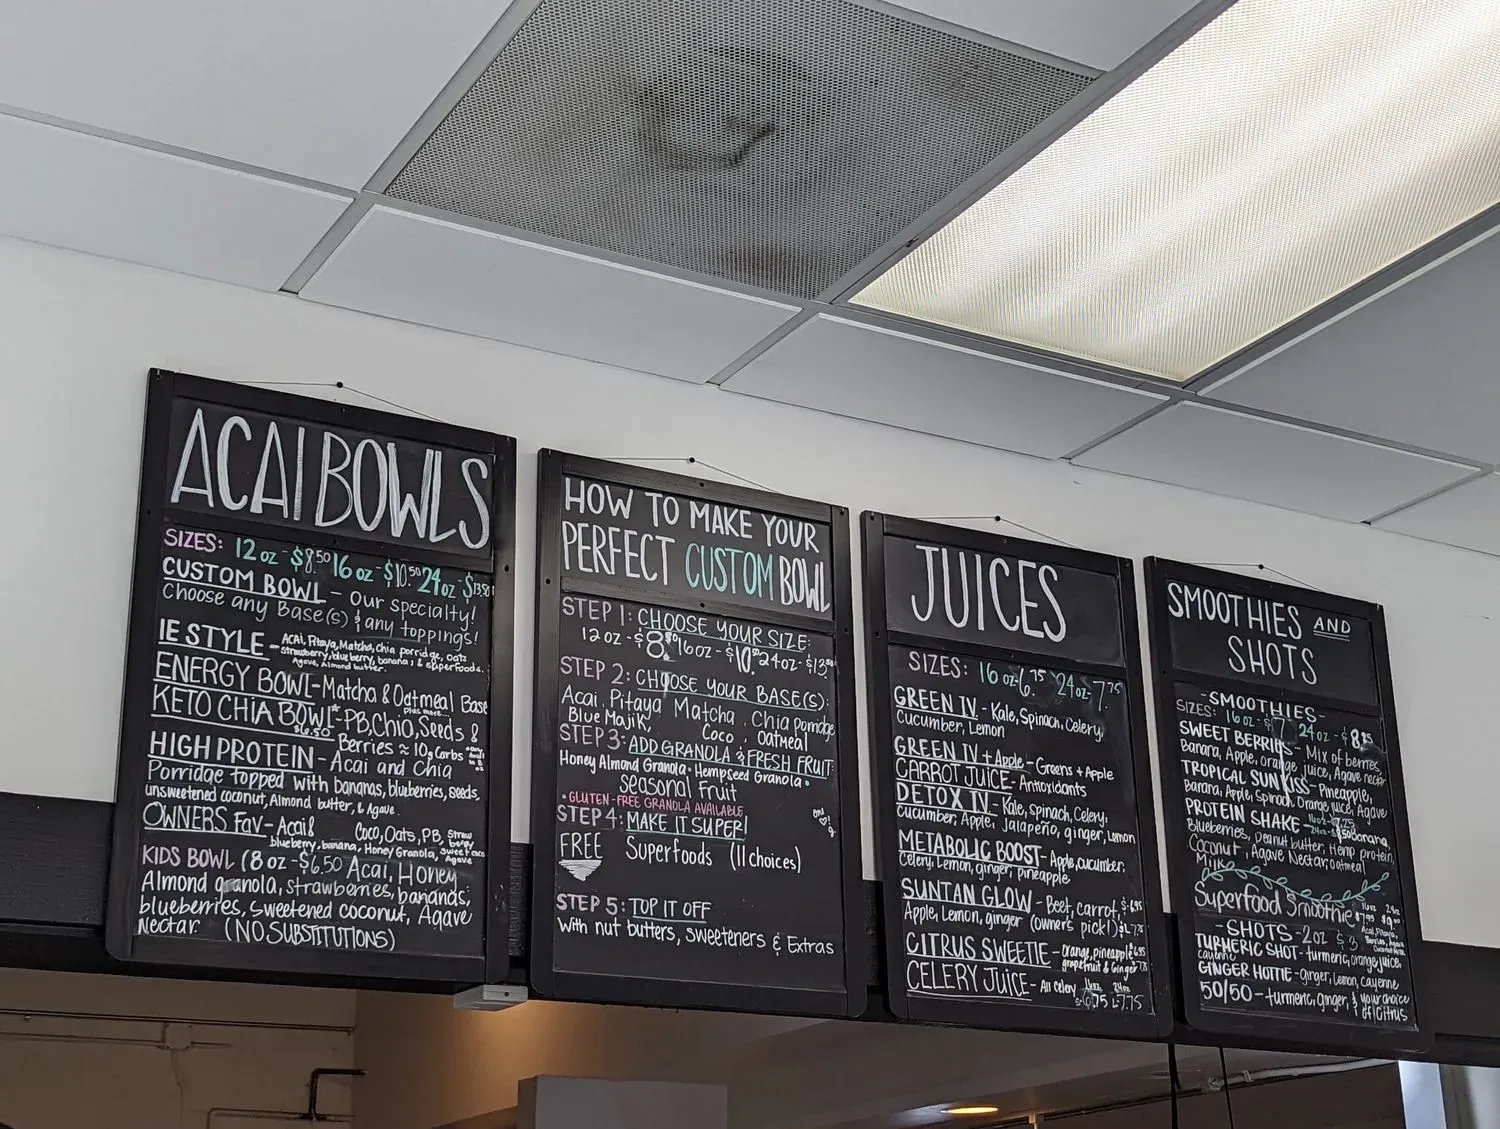 ACAI BOWLS
SIZES: 12 oz - $8.50 16 oz - $10.50 24 oz - $13.50
CUSTOM BOWL - Our specialty!
Choose any Base(s) & any toppings!
IE STYLE - Acai, Pitaya, Matcha, chia porridge, oats
strawberry, blueberry, banana, & superfoods.
Agave, Almond butter.
ENERGY BOWL - Matcha & Oatmeal Base
plus more...
KETO CHIA BOWL* - PB, Chia, Seeds &
$6.50 Berries ≈ 10g Carbs
HIGH PROTEIN - Acai and Chia
Porridge topped with bananas, blueberries, seeds,
unsweetened coconut, Almond butter, & Agave.
OWNERS FAV - Acai & Coco, Oats, PB, Straw
berry
blueberry, banana, Honey Granola, sweet coco
Agave
KIDS BOWL (8 oz - $6.50 Acai, Honey
Almond granola, strawberries, bananas,
blueberries, sweetened coconut, Agave
Nectar. (NO SUBSTITUTIONS)
HOW TO MAKE YOUR
PERFECT CUSTOM BOWL
STEP 1: CHOOSE YOUR SIZE:
12 oz - $8.50 16 oz - $10.50 24 oz - $13.50
STEP 2: CHOOSE YOUR BASE(S):
Acai, Pitaya, Matcha, Chia porridge
Blue Majik, Coco, Oatmeal
STEP 3: ADD GRANOLA & FRESH FRUIT:
Honey Almond Granola · Hempseed Granola ·
Seasonal Fruit
• GLUTEN-FREE GRANOLA AVAILABLE
STEP 4: MAKE IT SUPER!
FREE Superfoods (11 choices)
STEP 5: TOP IT OFF
with nut butters, sweeteners & Extras
JUICES
SIZES: 16 oz - 6.75 24 oz - 7.75
GREEN IV - Kale, Spinach, Celery,
Cucumber, Lemon
GREEN IV + Apple - Greens + Apple
CARROT JUICE - Antioxidants
DETOX IV - Kale, spinach, Celery,
Cucumber, Apple, Jalapeño, ginger, Lemon
METABOLIC BOOST - Apple, cucumber,
Celery, Lemon, ginger, pineapple
SUNTAN GLOW - Beet, carrot, S - 6.95
Apple, Lemon, ginger (owners pick!) L - 7.75
CITRUS SWEETIE - orange, pineapple 6.95
grapefruit & Ginger 7.75
CELERY JUICE - All Celery 16oz 24oz
S - 6.75 L - 7.75
SMOOTHIES AND
SHOTS
- SMOOTHIES -
SIZES: 16 oz - $7 24 oz - $8.95
SWEET BERRIES - Mix of berries,
Banana, Apple, orange juice, Agave nectar
TROPICAL SUNKISS - Pineapple,
Banana, Apple, Spinach, Orange juice, Agave
PROTEIN SHAKE Banana,
Blueberries, Peanut butter, Hemp protein,
Coconut, Agave Nectar, oatmeal
Milk
Superfood Smoothie 16oz 24oz
$7.95 $9.00
- SHOTS - 2oz $3
TURMERIC SHOT - turmeric, orange juice,
cayenne
GINGER HOTTIE - ginger, Lemon, cayenne
50/50 - turmeric, ginger, & your choice
of Citrus